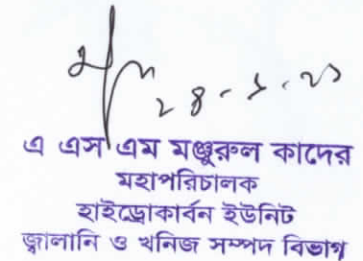 এ এস এম মঞ্জুরুল কাদের
মহাপরিচালক
হাইড্রোকার্বন ইউনিট
জ্বালানি ও খনিজ সম্পদ বিভাগ